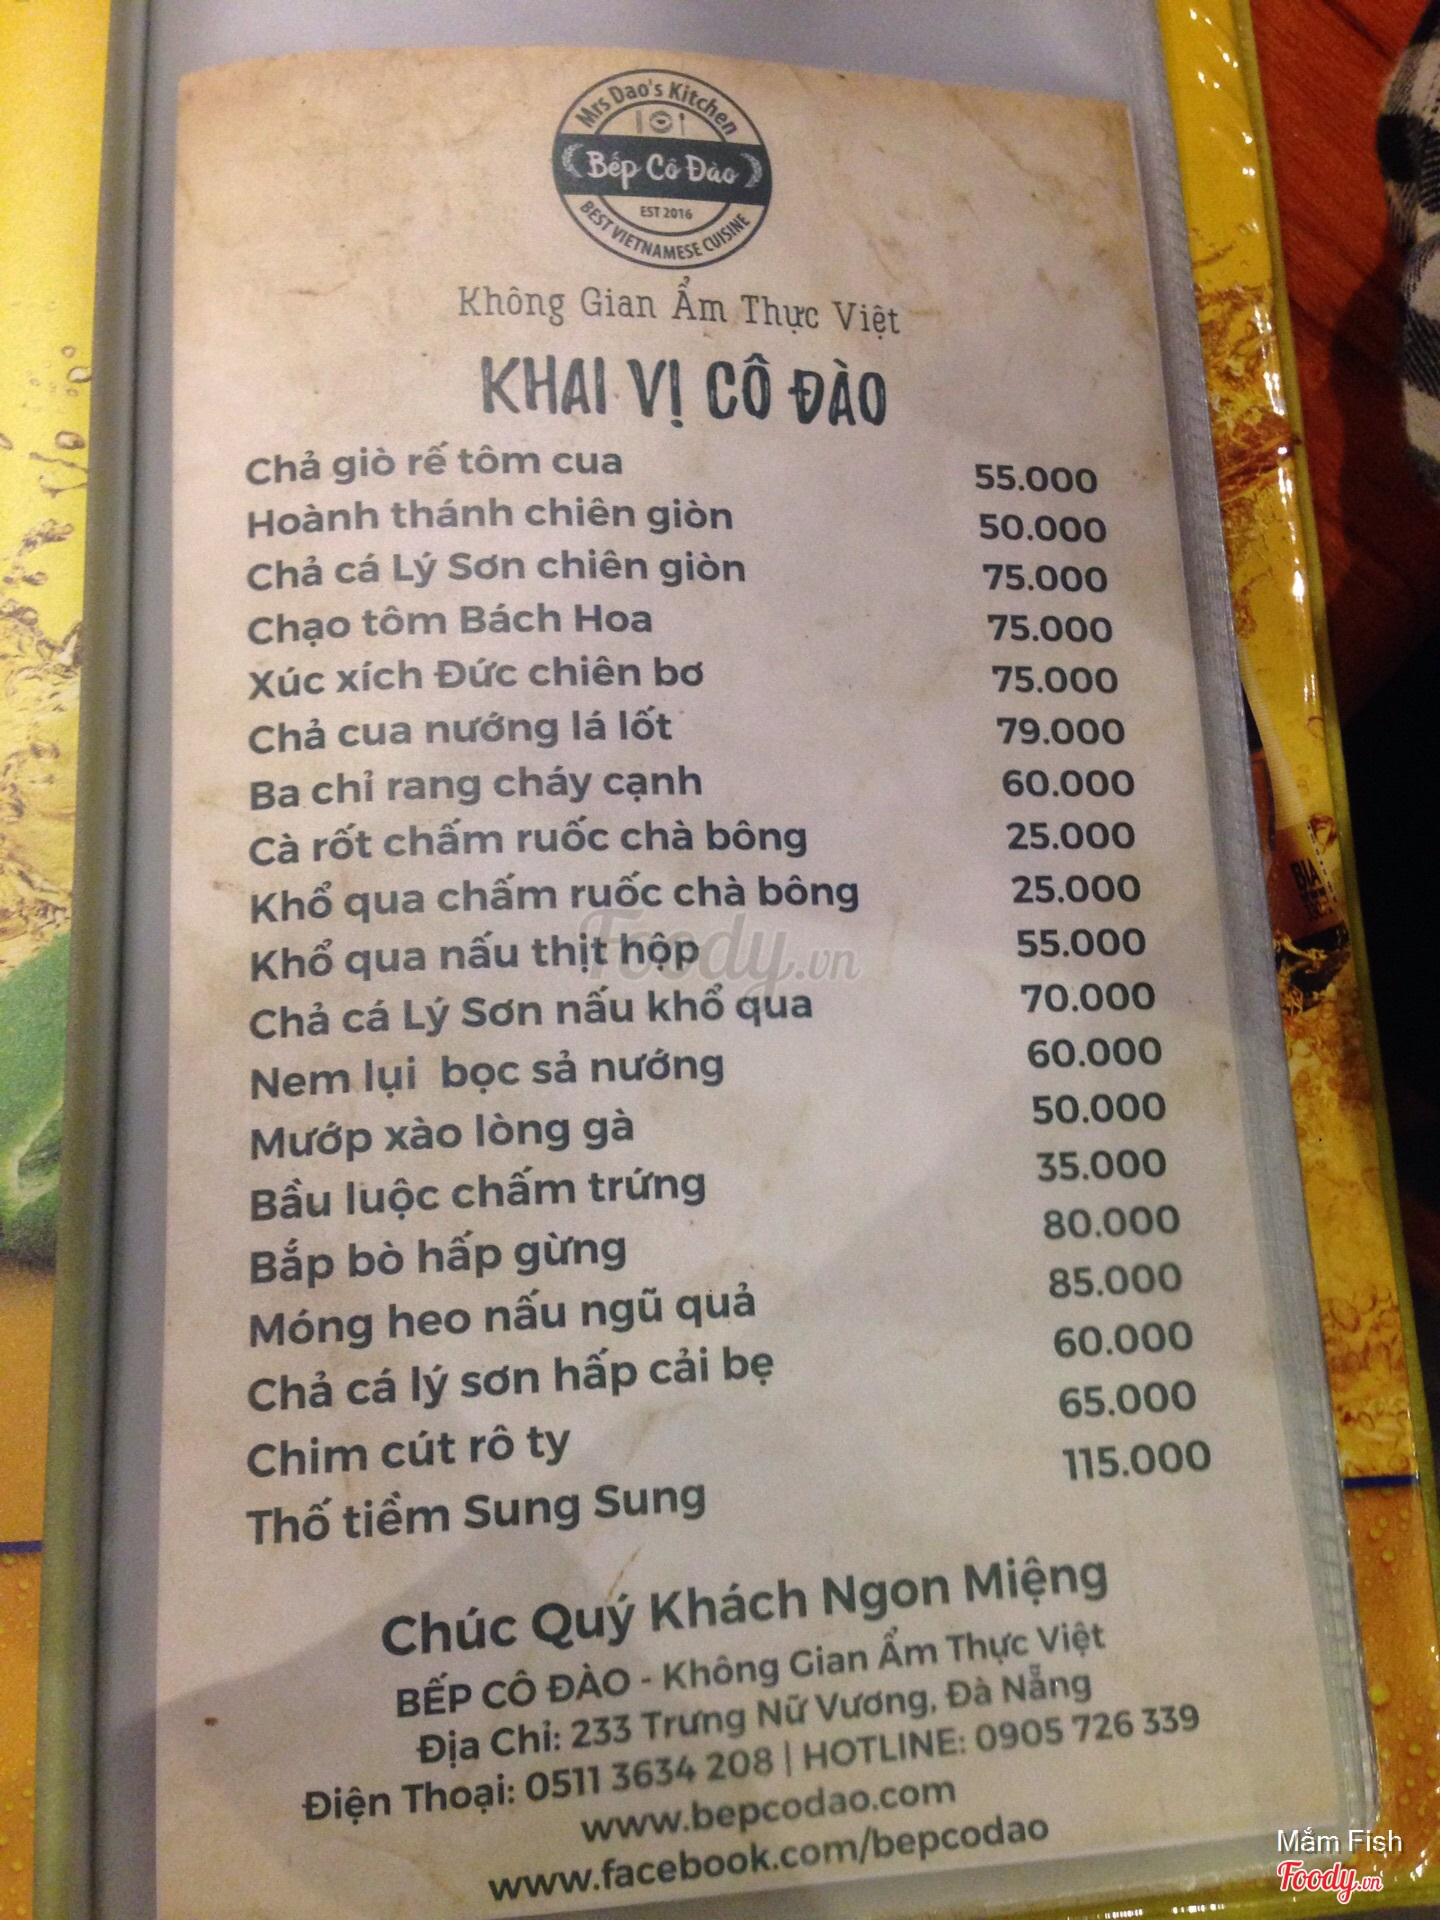 Mrs Dao's Kitchen
Bếp Cô Đào
EST 2016
BEST VIETNAMESE CUISINE
Không Gian Ẩm Thực Việt
KHAI VỊ CÔ ĐÀO
Chả giò rế tôm cua 55.000
Hoành thánh chiên giòn 50.000
Chả cá Lý Sơn chiên giòn 75.000
Chạo tôm Bách Hoa 75.000
Xúc xích Đức chiên bơ 75.000
Chả cua nướng lá lốt 79.000
Ba chỉ rang cháy cạnh 60.000
Cà rốt chấm ruốc chà bông 25.000
Khổ qua chấm ruốc chà bông 25.000
Khổ qua nấu thịt hộp 55.000
Chả cá Lý Sơn nấu khổ qua 70.000
Nem lụi bọc sả nướng 60.000
Mướp xào lòng gà 50.000
Bầu luộc chấm trứng 35.000
Bắp bò hấp gừng 80.000
Móng heo nấu ngũ quả 85.000
Chả cá lý sơn hấp cải bẹ 60.000
Chim cút rô ty 65.000
Thố tiềm Sung Sung 115.000
Foody.vn
Chúc Quý Khách Ngon Miệng
BẾP CÔ ĐÀO - Không Gian Ẩm Thực Việt
Địa Chỉ: 233 Trưng Nữ Vương, Đà Nẵng
Điện Thoại: 0511 3634 208 | HOTLINE: 0905 726 339
www.bepcodao.com
www.facebook.com/bepcodao
BIA
Mắm Fish
Foody.vn